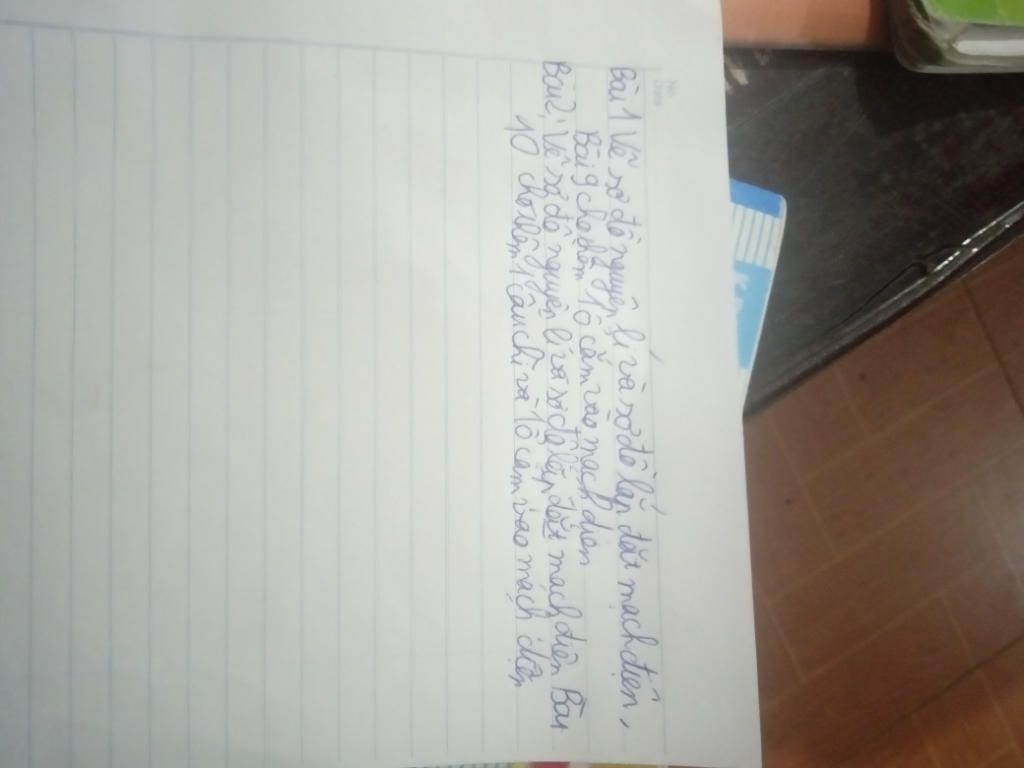 No.
Date
Bài 1 Vẽ sơ đồ nguyên lí và sơ đồ lắp đặt mạch điện,
Bài 9 cho thêm 1 ổ cắm vào mạch điện
Bài 2: Vẽ sơ đồ nguyên lí và sơ đồ lắp đặt mạch điện Bài
10 cho thêm 1 cầu chì và 1 ổ cắm vào mạch điện